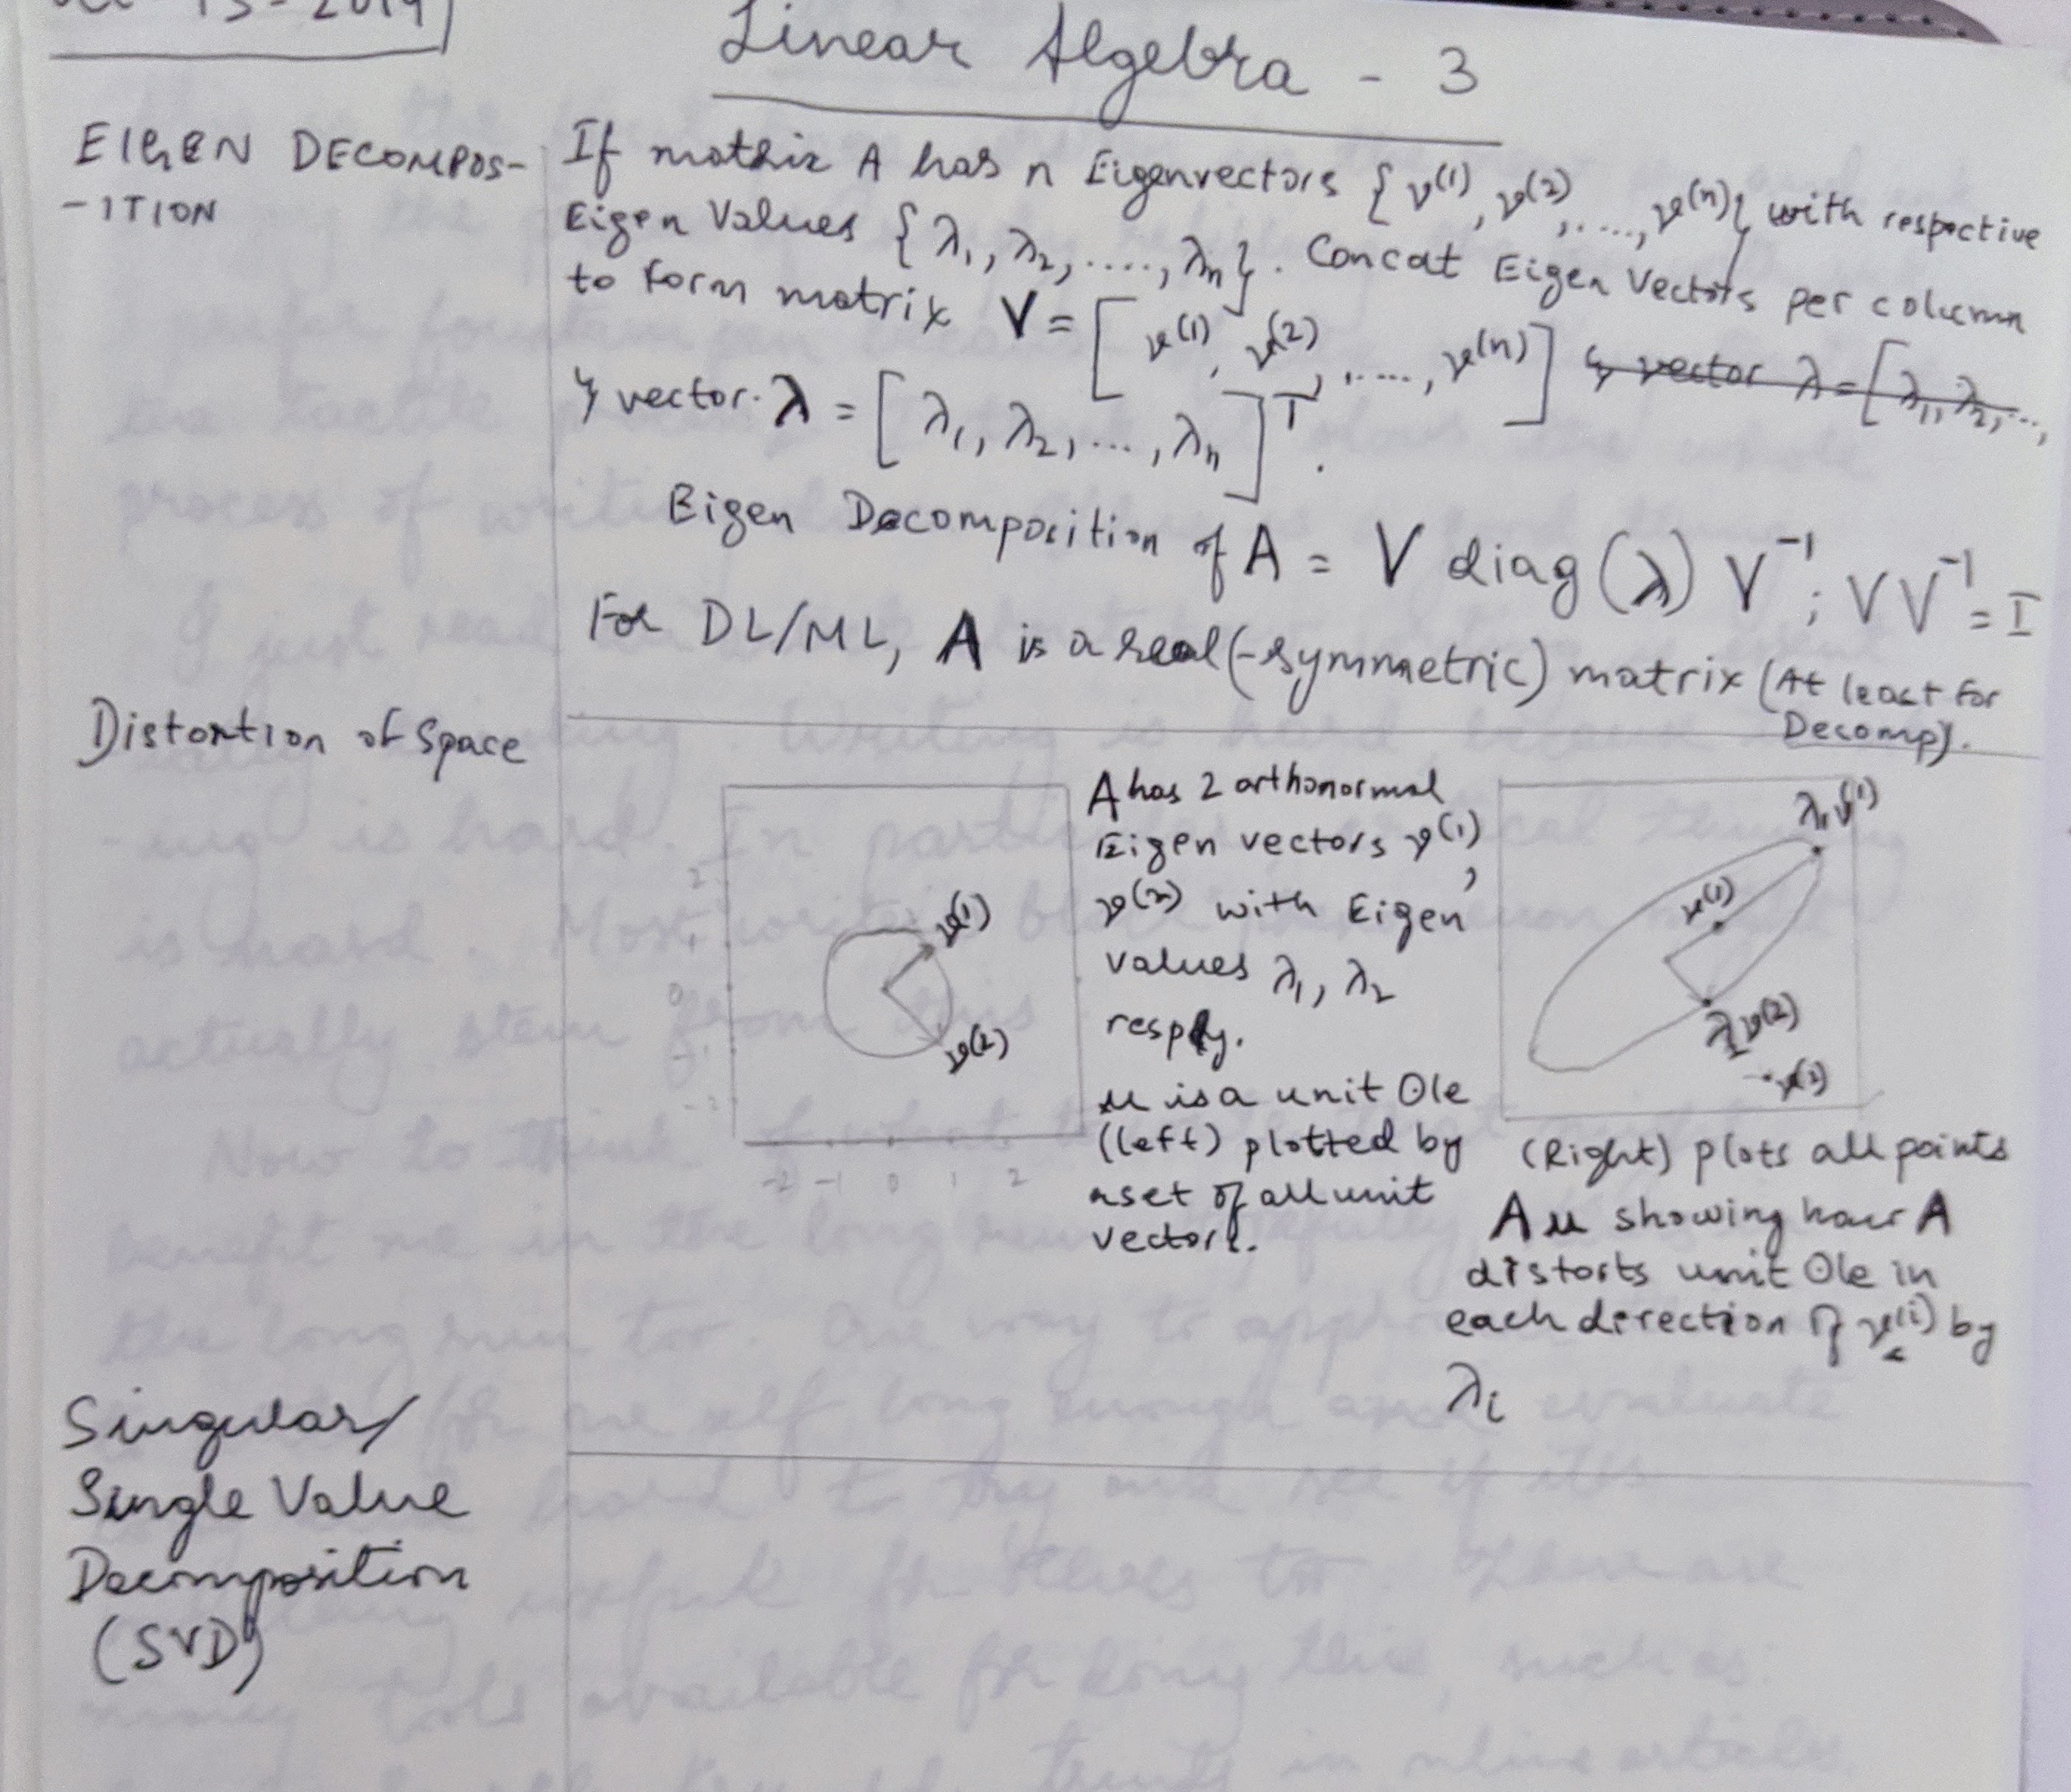 13-2019
Linear Algebra - 3
EIGEN DECOMPOS-
-ITION
If matrix A has n Eigenvectors {v(1), v(2), ...., v(n)} with respective
Eigen Values {λ1, λ2, ....., λn}. Concat Eigen Vectors per column
to form matrix V = [v(1), v(2), ....., v(n)] & vector λ = [λ1, λ2, ...,
& vector λ = [λ1, λ2, ..., λn]T.
Eigen Decomposition of A = V diag(λ) V-1; VV-1 = I
For DL/ML, A is a real(-symmetric) matrix (At least for
Decomp).
Distortion of Space
2
1
0
-1
-2
-2 -1 0 1 2
v(1)
v(2)
A has 2 orthonormal
Eigen vectors v(1),
v(2) with Eigen
values λ1, λ2
resply.
u is a unit Ole
(left) plotted by
a set of all unit
vectors.
λ1v(1)
v(1)
λ2v(2)
v(2)
(Right) plots all points
Au showing how A
distorts unit Ole in
each direction of v(i) by
λi
Singular/
Single Value
Decomposition
(SVD)